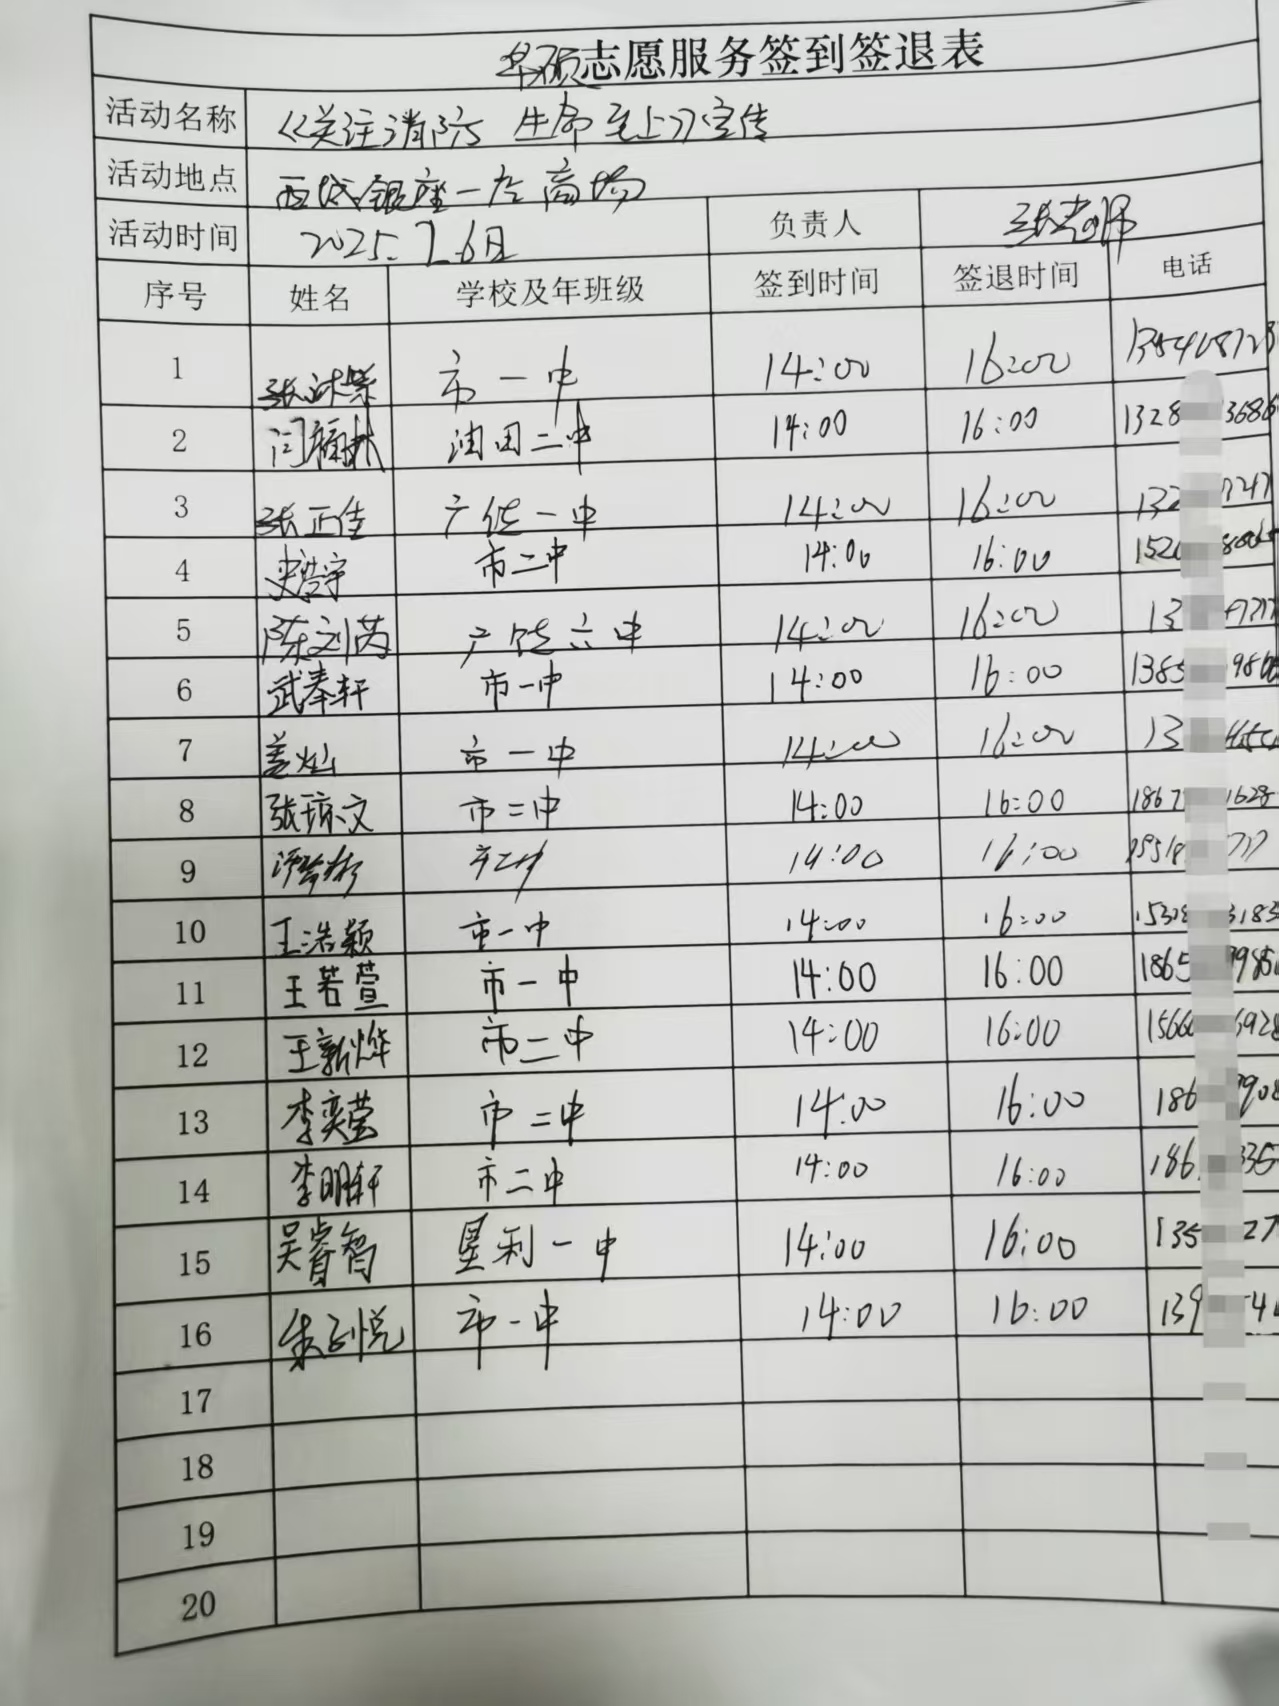 志愿服务签到签退表
活动名称 《关注消防 生命至上》宣传
活动地点 西城银座一店商场
活动时间 2025. 负责人 张老师
序号 姓名 学校及年班级 签到时间 签退时间 电话
1 市一中 14:00 16:00
2 闫楠林 油田二中 14:00 16:00 1328 3686
3 张正佳 广饶一中 14:00 16:00 132
4 史浩宇 市二中 14:00 16:00
5 陈刘芮 广饶六中 14:00 16:00 13
6 武奉轩 市一中 14:00 16:00 1385
7 姜灿 市一中 14:00 16:00 13
8 张琼文 市二中 14:00 16:00 1867 1628
9 市二中 14:00 16:00
10 王浩颖 市一中 14:00 16:00 3183
11 王若萱 市一中 14:00 16:00 1865
12 王新烨 市二中 14:00 16:00 6928
13 李奕莹 市二中 14:00 16:00 186
14 李明轩 市二中 14:00 16:00 186
15 吴睿智 垦利一中 14:00 16:00 135 27
16 朱子悦 市一中 14:00 16:00 139
17
18
19
20